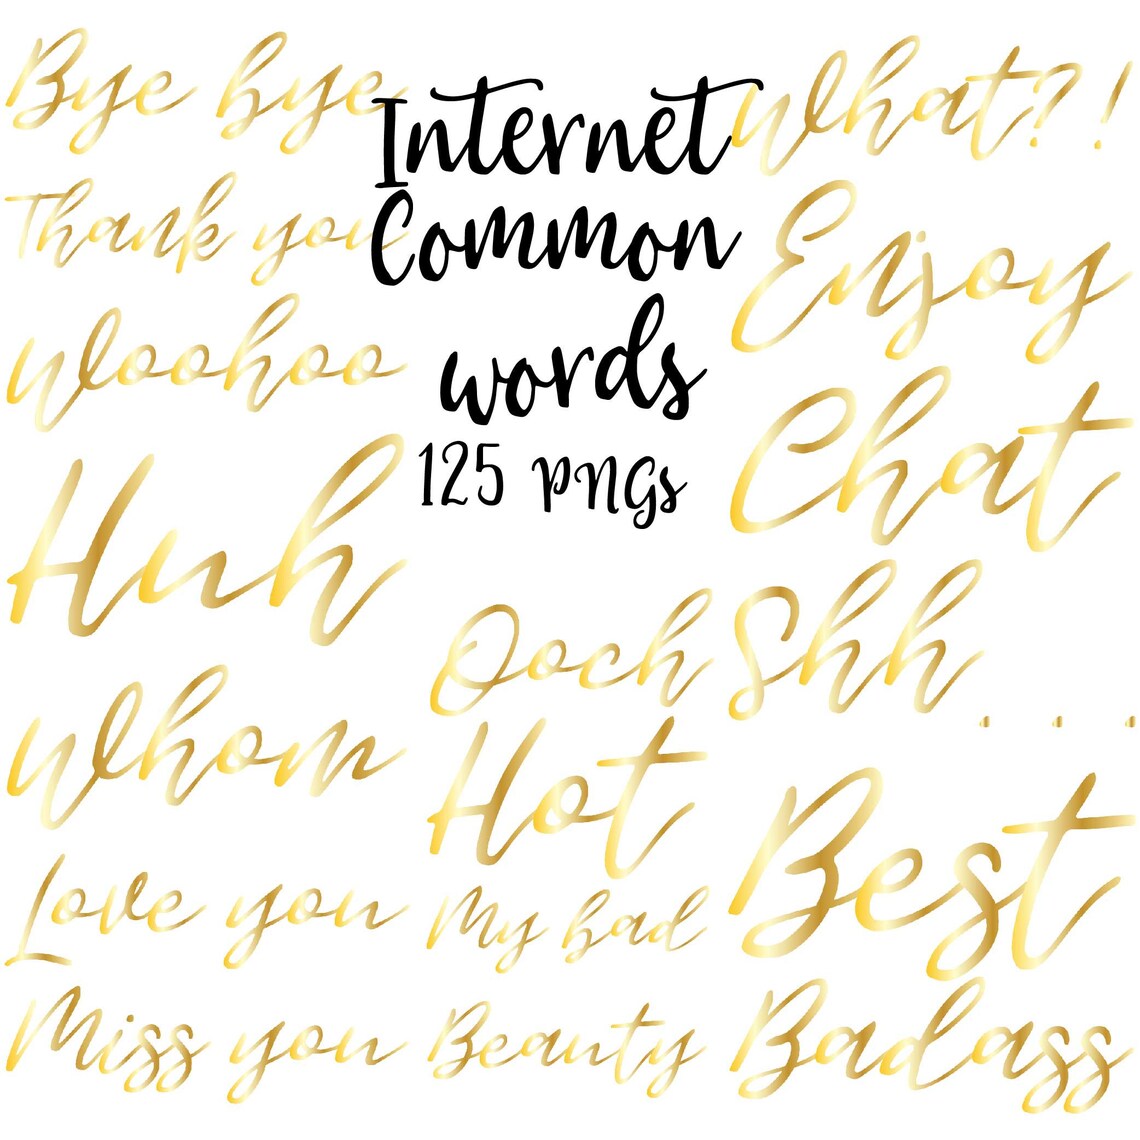 Bye bye
Thank you
Woohoo
Huh
Whom
Love you
Miss you
Internet
Common
words
125 PNGs
Ooch
Hot
My bad
Beauty
What?!
Enjoy
Chat
Shh...
Best
Badass